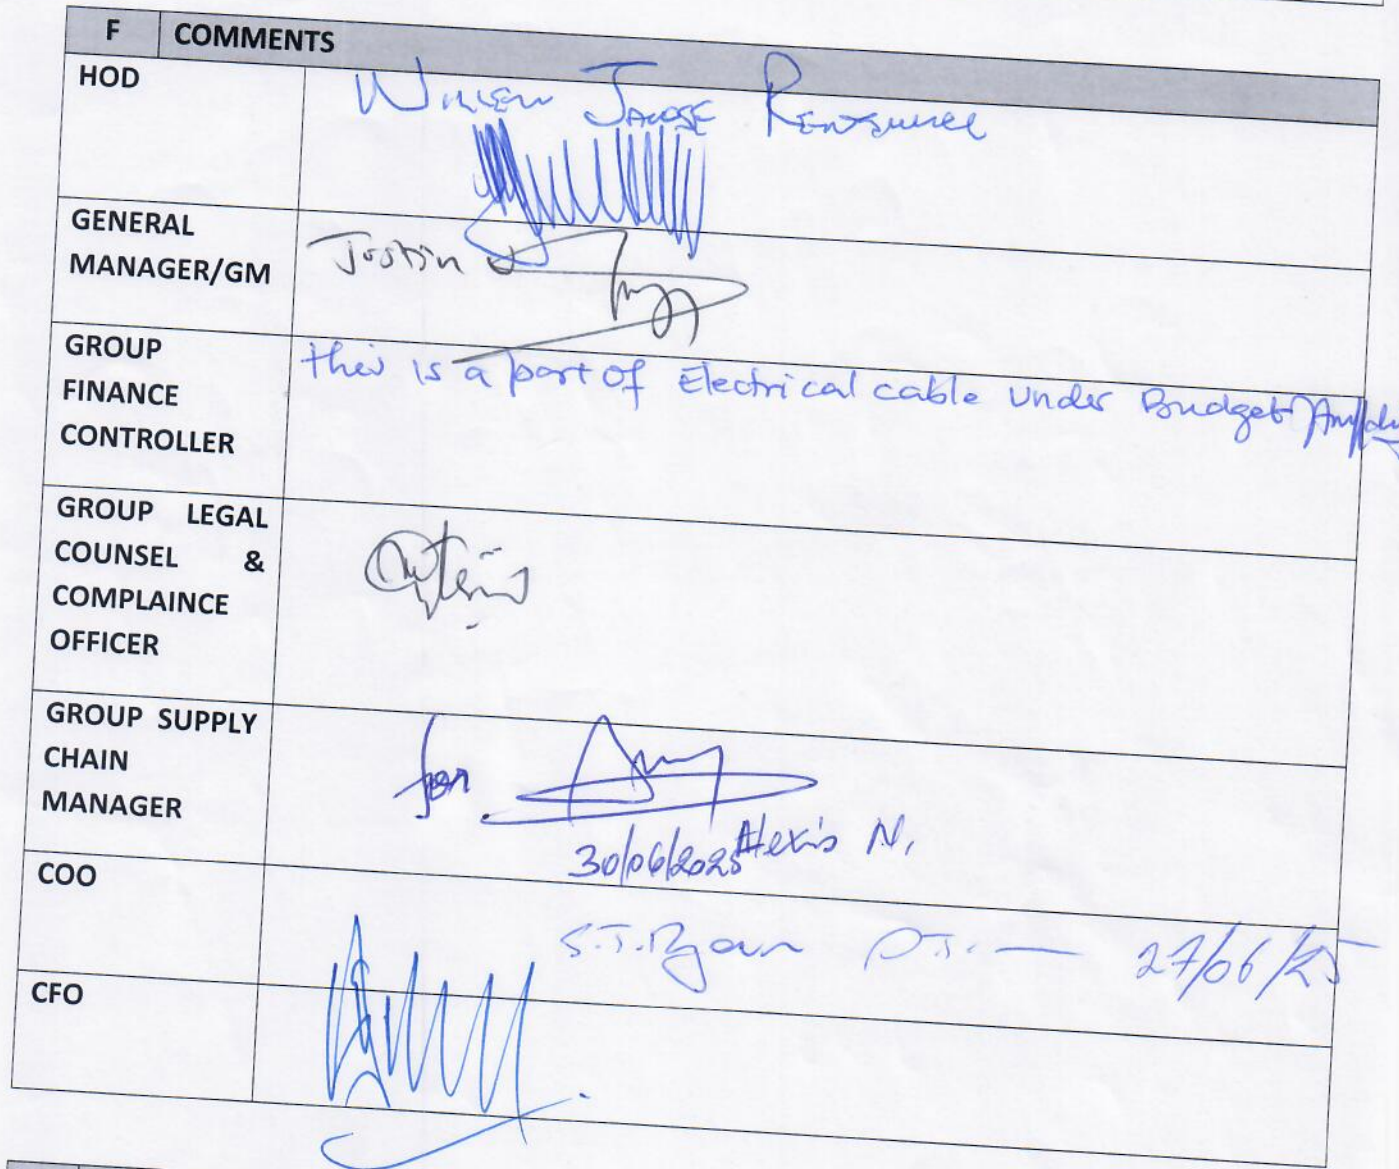 F COMMENTS
HOD
Willem Jacose
GENERAL
MANAGER/GM
Justin
GROUP
FINANCE
CONTROLLER
this is a part of Electrical cable under Budget
GROUP LEGAL
COUNSEL &
COMPLAINCE
OFFICER
GROUP SUPPLY
CHAIN
MANAGER
for
30/06/2025 Alexis N.
COO
S.J. Ryan 27/06/25
CFO